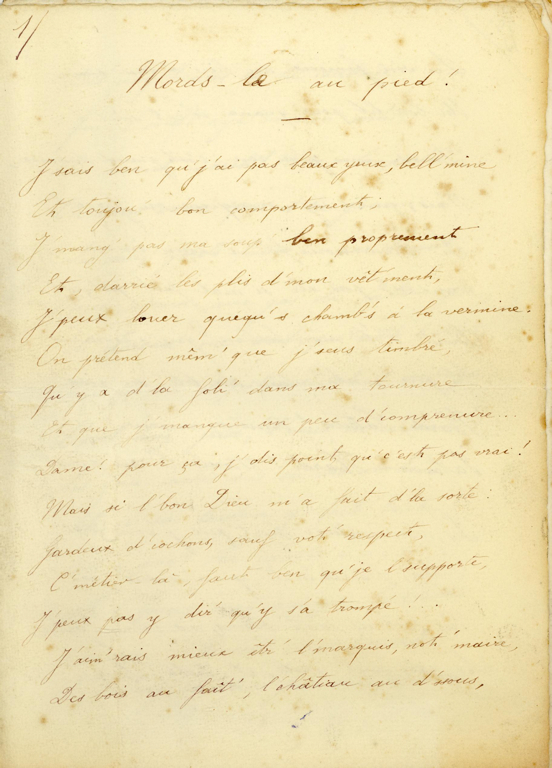 1/
Mords-la au pied !
J'sais ben qu'j'ai pas beaux yeux, bell' mine
Et toujou' bon comportement ;
J'mang' pas ma soup' ben proprement
Et, darrié les plis d'mon vêt'ment,
J'peux louer quequ's chamb's à la vermine.
On prétend mêm' que j'seus timbré,
Qu'y a d'la foli' dans ma tournure
Et que j'manque un peu d'comprenure...
Dame ! pour ça, j'dis point qu'c'est pas vrai !
Mais si l'bon Dieu m'a fait d'la sorte :
Gardeux d'cochons, sauf vot' respect,
C'métier là, faut ben qu'je l'supporte,
J'peux pas y dir' qu'y s'a trompé !...
J'aim'rais mieux êtr' l'marquis, not' maire,
Des bois au faît', l'château au d'sous,